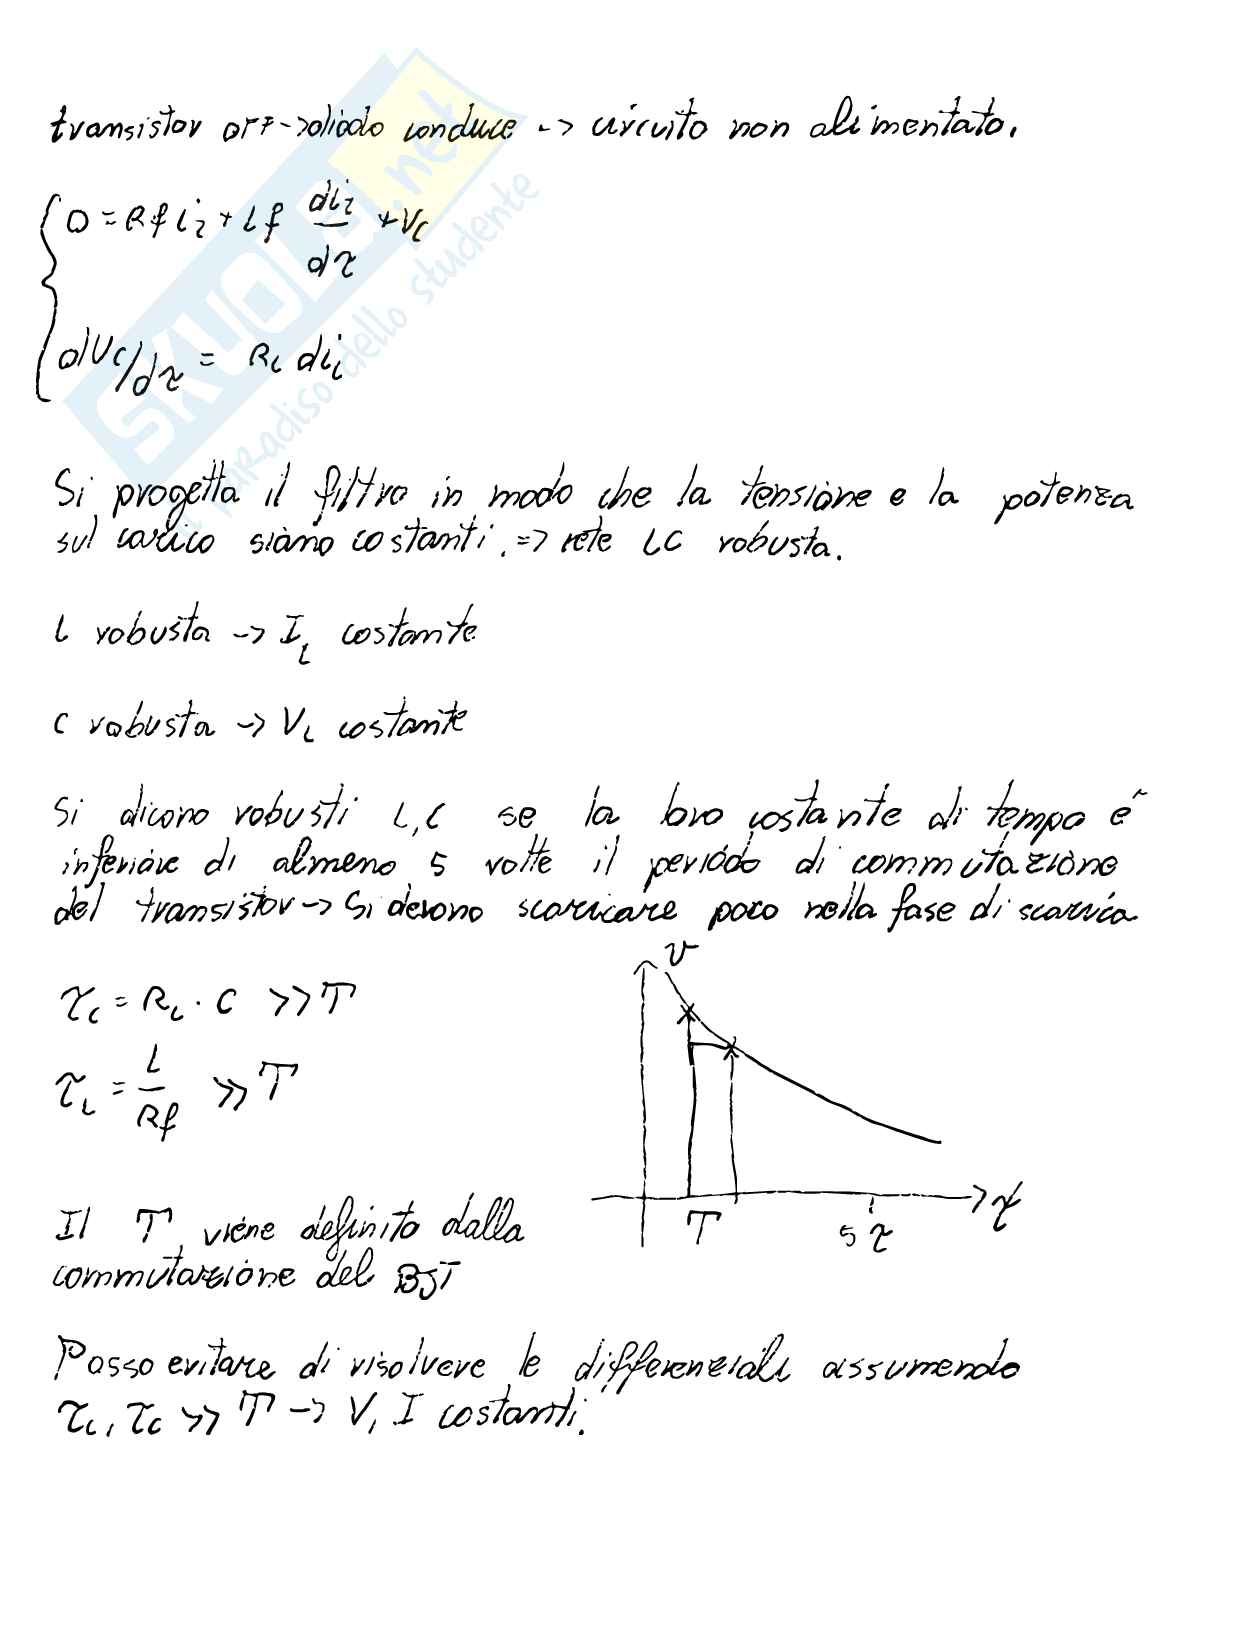 transistor OFF->diodo conduce -> circuito non alimentato.
0 = Rf i₂ + Lf di₂/dτ + Vc
dVc/dτ = RL diL
Si progetta il filtro in modo che la tensione e la potenza
sul carico siano costanti. => rete LC robusta.
L robusta -> IL costante
C robusta -> VL costante
Si dicono robusti L,C se la loro costante di tempo è
inferiore di almeno 5 volte il periodo di commutazione
del transistor -> Si devono scaricare poco nella fase di scarica
τc = RL · C >> T
τL = L/Rf >> T
v
T
5τ
τ
Il T viene definito dalla
commutazione del BJT
Posso evitare di risolvere le differenziali assumendo
τL, τC >> T -> V, I costanti.
SKUOLA.net
il paradiso dello studente